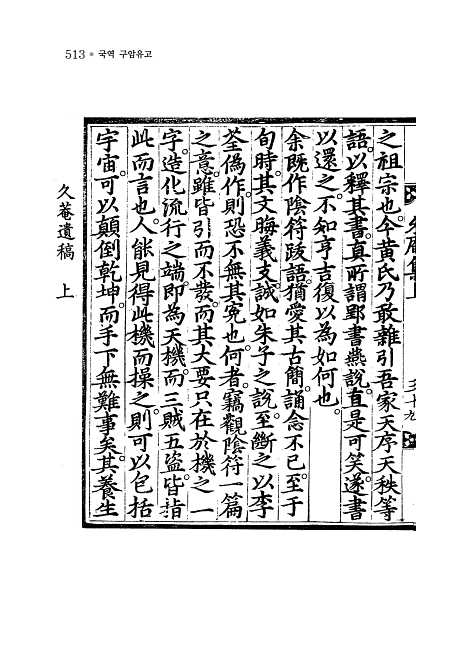 513 ● 국역 구암유고
之祖宗也。今黄氏乃敢雜引吾家天序天秩等
語。以釋其書。真所謂郢書燕說。直是可笑。遂書
以還之。不知亨吉復以為如何也。
余旣作陰符跋語。猶愛其古簡。誦念不已。至于
旬時。其文晦義支。誠如朱子之說。至斷之以李
荃僞作。則恐不無其寃也。何者。竊觀陰符一篇
之意。雖皆引而不發。而其大要只在於機之一
字。造化流行之端。即為天機。而三賊五盜。皆指
此而言也。人能見得此機而操之。則可以包括
宇宙。可以顛倒乾坤。而手下無難事矣。其養生
久菴遺稿 上